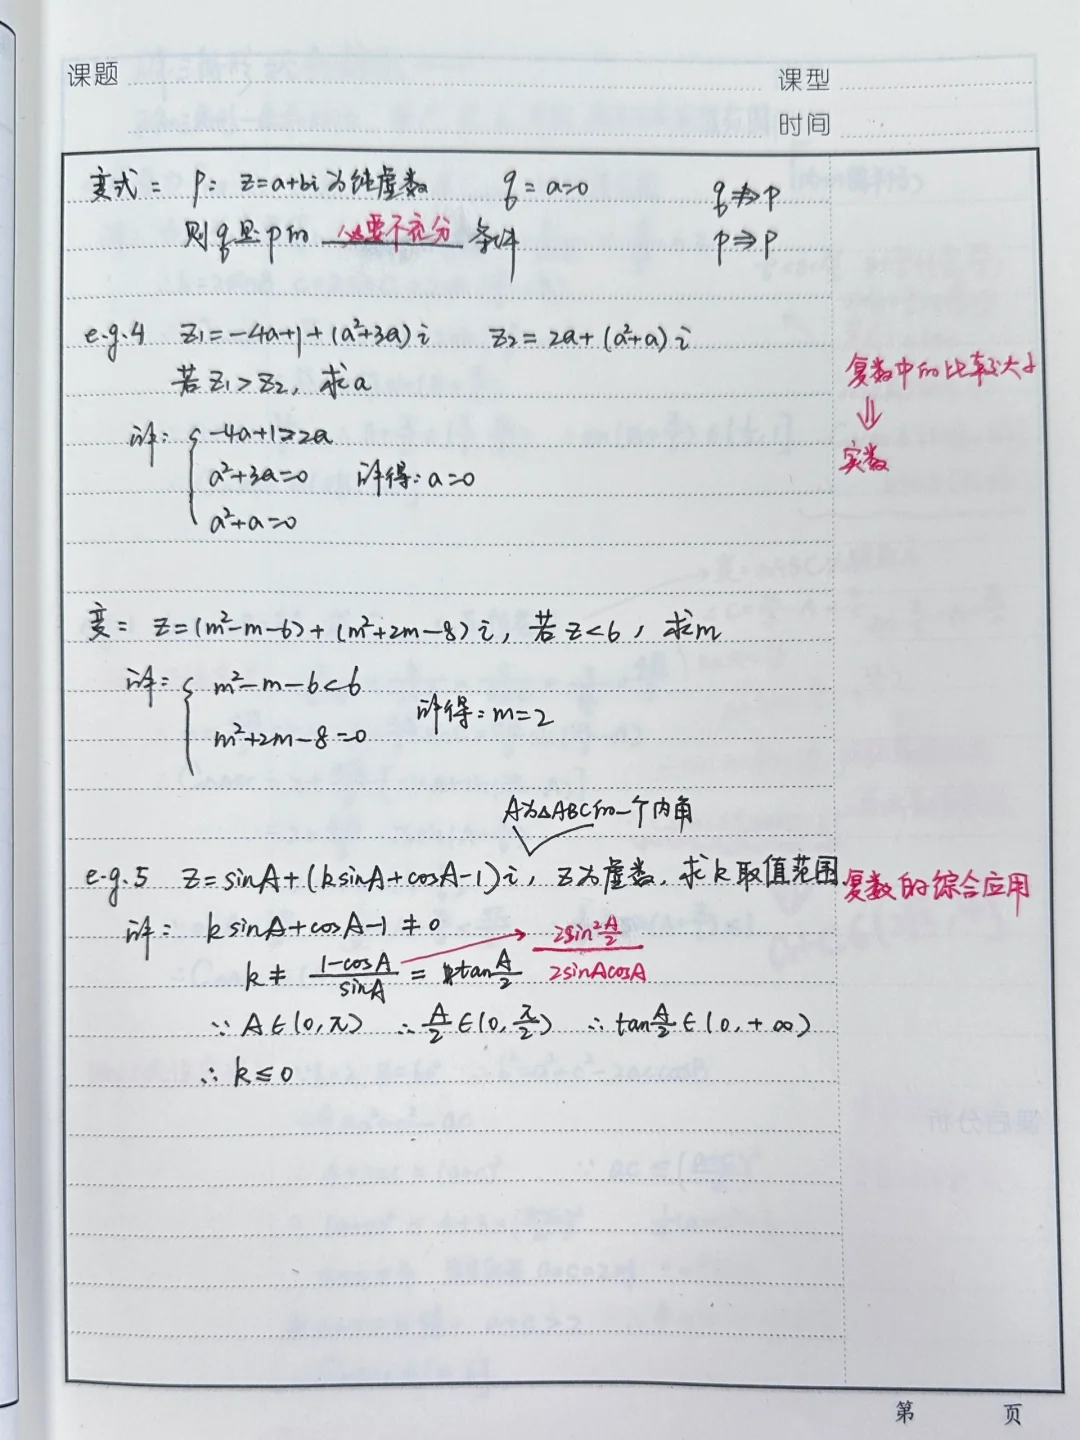 课题
课型
时间
变式: p: z=a+bi为纯虚数 q: a=0 q⇏p
则q是p的 必要不充分 条件 p⇒p
e.g.4 z₁=-4a+1+(a²+3a)i z₂=2a+(a²+a)i
若z₁>z₂, 求a
复数中的比较大小
⇓
实数
解: { -4a+1>2a
a²+3a=0 解得: a=0
a²+a=0
变: z=(m²-m-6)+(m²+2m-8)i, 若z<6, 求m
解: { m²-m-6<6
m²+2m-8=0 解得: m=2
A为△ABC的一个内角
e.g.5 z=sinA+(ksinA+cosA-1)i, z为虚数, 求k取值范围
复数的综合应用
解: ksinA+cosA-1≠0
k≠ (1-cosA)/sinA = tan A/2 → 2sin² A/2 / 2sinAcosA
∵ A∈(0,π) ∴ A/2∈(0,π/2) ∴ tan A/2∈(0,+∞)
∴ k≤0
第 页